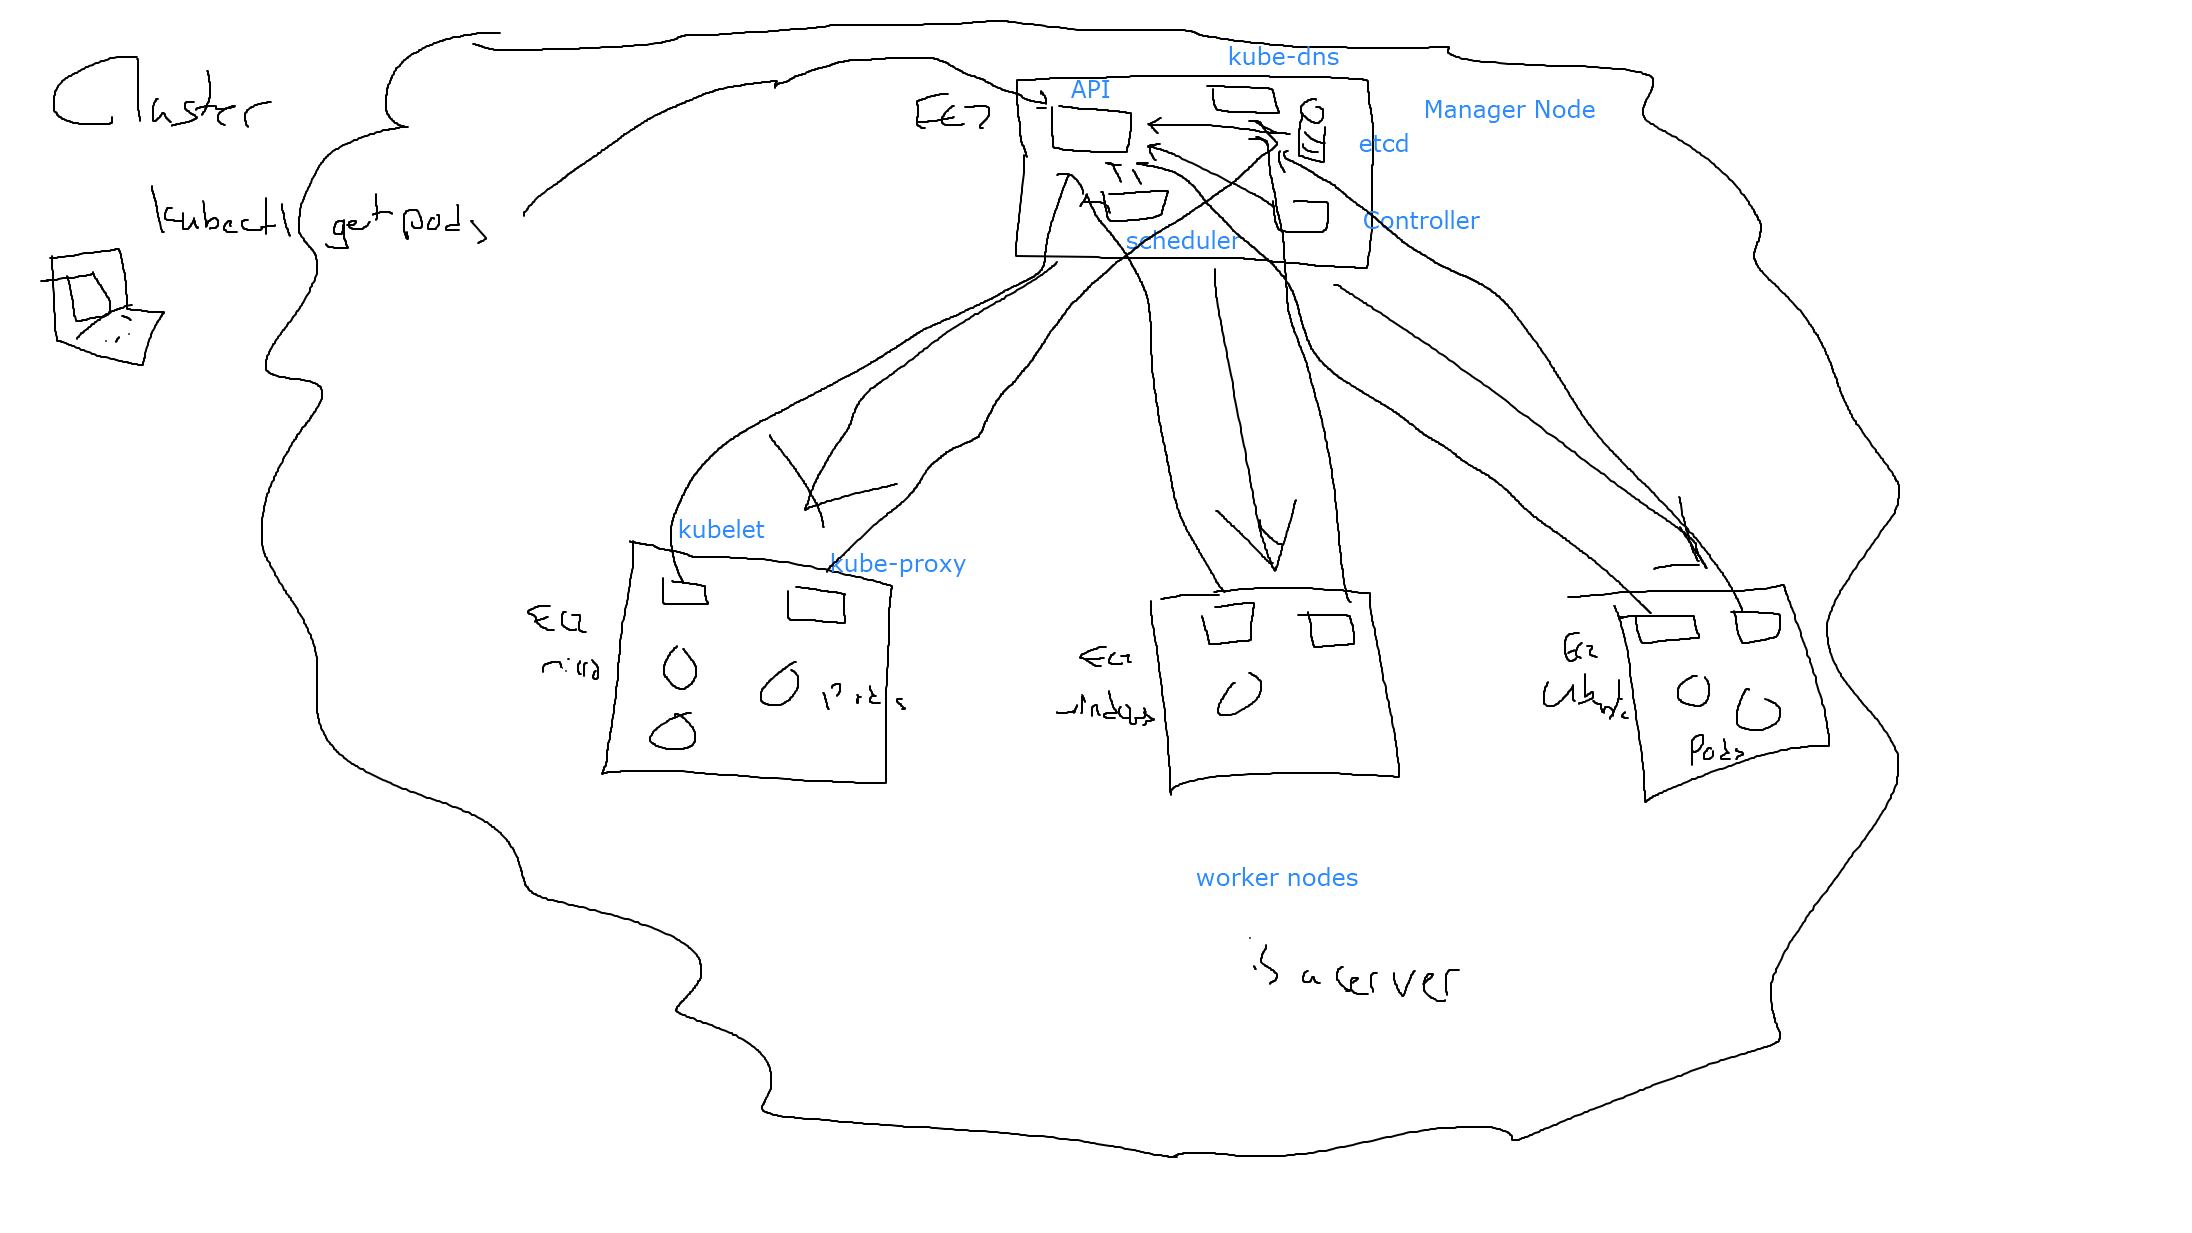 Cluster
kubectl get pods
kube-dns
API
EC2
Manager Node
etcd
Controller
scheduler
kubelet
kube-proxy
EC2
Pods
EC2
windows
EC2
Pods
worker nodes
is a server